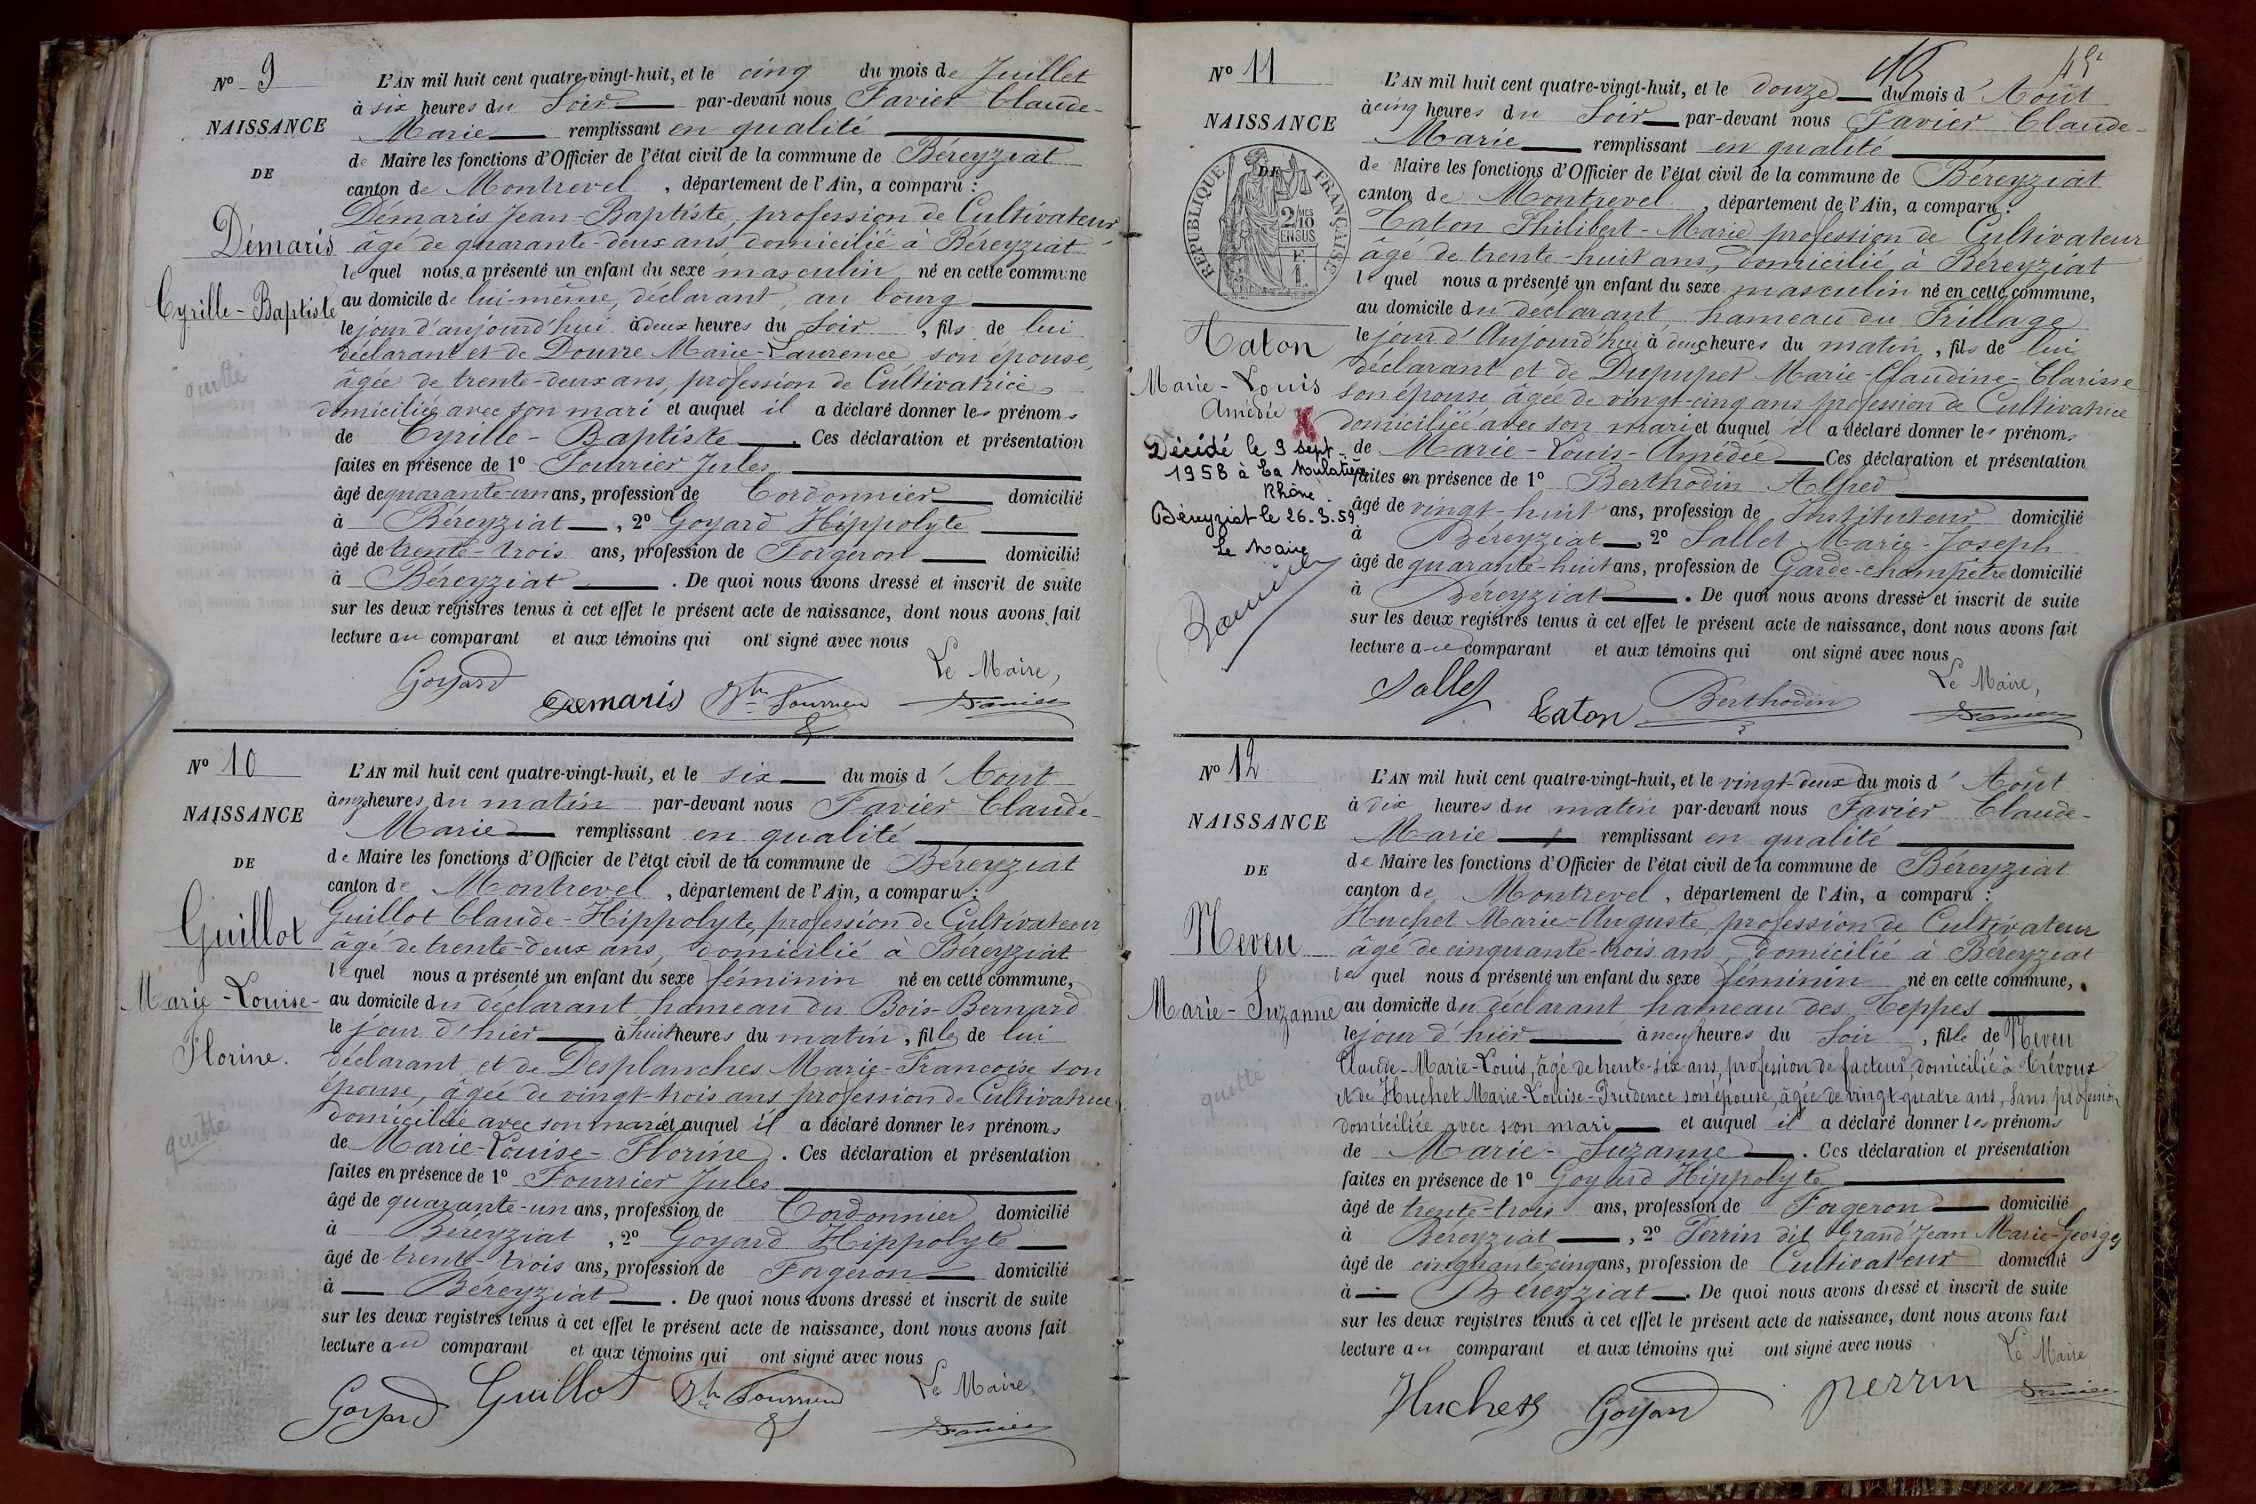 N° 9
NAISSANCE
DE
Démaris
Cyrille-Baptiste
quitte
L'AN mil huit cent quatre-vingt-huit, et le cinq du mois de Juillet
à six heures du Soir par-devant nous Favier Claude-
Marie remplissant en qualité
de Maire les fonctions d'Officier de l'état civil de la commune de Béreyziat
canton de Montrevel, département de l'Ain, a comparu :
Démaris Jean-Baptiste, profession de Cultivateur,
âgé de quarante-deux ans, domicilié à Béreyziat
lequel nous a présenté un enfant du sexe masculin, né en cette commune
au domicile de lui-même, déclarant, au bourg
le jour d'aujourd'hui à deux heures du Soir, fils de lui
déclarant et de Dourre Marie-Laurence, son épouse,
âgée de trente-deux ans, profession de Cultivatrice
domiciliée avec son mari et auquel il a déclaré donner les prénoms
de Cyrille-Baptiste. Ces déclaration et présentation
faites en présence de 1° Fourrier Jules
âgé de quarante-un ans, profession de Cordonnier domicilié
à Béreyziat, 2° Goyard Hippolyte
âgé de trente-trois ans, profession de Forgeron domicilié
à Béreyziat. De quoi nous avons dressé et inscrit de suite
sur les deux registres tenus à cet effet le présent acte de naissance, dont nous avons fait
lecture au comparant et aux témoins qui ont signé avec nous
Le Maire,
Goyard Demaris Fourrier Favier
N° 10
NAISSANCE
DE
Guillot
Marie-Louise-
Florine.
quitte
L'AN mil huit cent quatre-vingt-huit, et le six du mois d'Aout
à onze heures du matin par-devant nous Favier Claude-
Marie remplissant en qualité
de Maire les fonctions d'Officier de l'état civil de la commune de Béreyziat
canton de Montrevel, département de l'Ain, a comparu :
Guillot Claude-Hippolyte, profession de Cultivateur
âgé de trente-deux ans, domicilié à Béreyziat
lequel nous a présenté un enfant du sexe féminin né en cette commune,
au domicile du déclarant hameau du Bois-Bernard
le jour d'hier à huit heures du matin, fille de lui
déclarant et de Desplanches Marie-Françoise son
épouse, âgée de vingt-trois ans profession de Cultivatrice
domiciliée avec son mari et auquel il a déclaré donner les prénoms
de Marie-Louise-Florine. Ces déclaration et présentation
faites en présence de 1° Fourrier Jules
âgé de quarante-un ans, profession de Cordonnier domicilié
à Béreyziat, 2° Goyard Hippolyte
âgé de trente-trois ans, profession de Forgeron domicilié
à Béreyziat. De quoi nous avons dressé et inscrit de suite
sur les deux registres tenus à cet effet le présent acte de naissance, dont nous avons fait
lecture au comparant et aux témoins qui ont signé avec nous
Le Maire,
Goyard Guillot Fourrier Favier
N° 11
NAISSANCE
DE
RÉPUBLIQUE FRANÇAISE
Taton
Marie-Louis
Amédée
Décédé le 9 sept.
1958 à La Mulatière
Rhône
Béreyziat le 26.3.59
Le Maire
L'AN mil huit cent quatre-vingt-huit, et le douze du mois d'Août
à cinq heures du Soir par-devant nous Favier Claude-
Marie remplissant en qualité
de Maire les fonctions d'Officier de l'état civil de la commune de Béreyziat
canton de Montrevel, département de l'Ain, a comparu :
Taton Philibert-Marie profession de Cultivateur
âgé de trente-huit ans, domicilié à Béreyziat
lequel nous a présenté un enfant du sexe masculin né en cette commune,
au domicile du déclarant hameau du Trillage
le jour d'Aujourd'hui à deux heures du matin, fils de lui
déclarant et de Dupupet Marie-Claudine-Clarisse
son épouse âgée de vingt-cinq ans profession de Cultivatrice
domiciliée avec son mari et auquel il a déclaré donner les prénoms
de Marie-Louis-Amédée Ces déclaration et présentation
faites en présence de 1° Berthodin Alfred
âgé de vingt-huit ans, profession de Instituteur domicilié
à Béreyziat, 2° Sallet Marie-Joseph
âgé de quarante-huit ans, profession de Garde-champêtre domicilié
à Béreyziat. De quoi nous avons dressé et inscrit de suite
sur les deux registres tenus à cet effet le présent acte de naissance, dont nous avons fait
lecture au comparant et aux témoins qui ont signé avec nous
Le Maire,
Sallet Taton Berthodin Favier
N° 12
NAISSANCE
DE
Neven
Marie-Suzanne
quitte
L'AN mil huit cent quatre-vingt-huit, et le vingt-deux du mois d'Août
à dix heures du matin par-devant nous Favier Claude-
Marie remplissant en qualité
de Maire les fonctions d'Officier de l'état civil de la commune de Béreyziat
canton de Montrevel, département de l'Ain, a comparu :
Huchet Marie-Auguste, profession de Cultivateur
âgé de cinquante-trois ans, domicilié à Béreyziat
lequel nous a présenté un enfant du sexe féminin né en cette commune,
au domicile du déclarant hameau des Teppes
le jour d'hier à neuf heures du Soir, fille de Neven
Claude-Marie-Louis, âgé de trente-six ans, profession de facteur, domicilié à Trévoux
et de Huchet Marie-Louise-Prudence son épouse, âgée de vingt-quatre ans, Sans profession
domiciliée avec son mari et auquel il a déclaré donner les prénoms
de Marie-Suzanne. Ces déclaration et présentation
faites en présence de 1° Goyard Hippolyte
âgé de trente-trois ans, profession de Forgeron domicilié
à Béreyziat, 2° Perrin dit Grand'Jean Marie-Georges
âgé de cinquante-cinq ans, profession de Cultivateur domicilié
à Béreyziat. De quoi nous avons dressé et inscrit de suite
sur les deux registres tenus à cet effet le présent acte de naissance, dont nous avons fait
lecture au comparant et aux témoins qui ont signé avec nous
Le Maire
Huchet Goyard perrin Favier